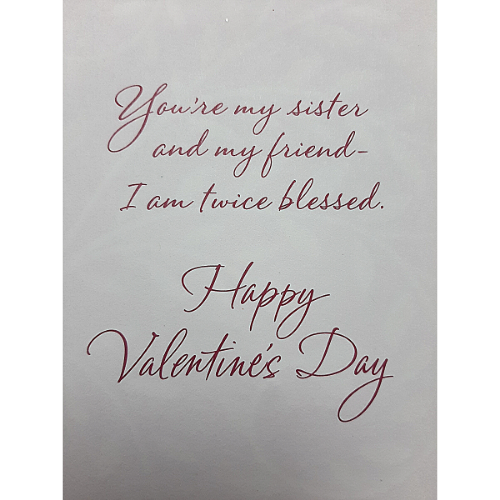 You're my sister
and my friend-
I am twice blessed.
Happy
Valentine's Day